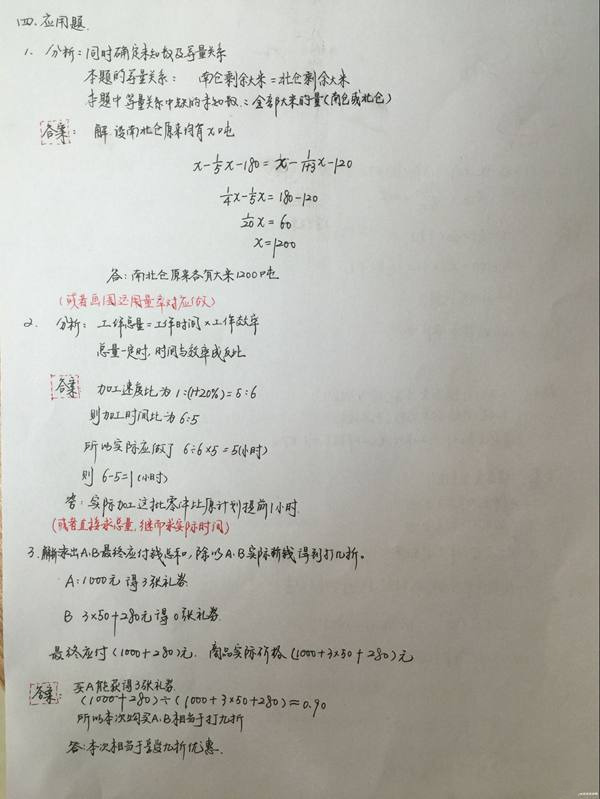 四.应用题.
1. 分析:同时确定未知数及等量关系
本题的等量关系: 南仓剩余大米=北仓剩余大米
本题中等量关系中缺的未知数:全部大米的量(南仓或北仓)
答案: 解.设南北仓原来均有x吨
x-1/5x-180=x-1/(1+3)x-120
1/4x-1/5x=180-120
1/20x=60
x=1200
答:南北仓原来各有大米1200吨
(或者画图运用量率对应做)
2. 分析: 工作总量=工作时间×工作效率
总量一定时,时间与效率成反比
答案 加工速度比为1:(1+20%)=5:6
则加工时间比为6:5
所以实际应做了 6÷6×5=5(小时)
则 6-5=1(小时)
答:实际加工这批零件比原计划提前1小时.
(或者直接求总量,继而求实际时间)
3.解析求出A.B最终应付钱总和,除以A.B实际价钱得到打几折。
A:1000元得3张礼券
B 3×50+280元得0张礼券.
最终应付(1000+280)元. 商品实际价格(1000+3×50+280)元
答案: 买A能获得3张礼券.
(1000+280)÷(1000+3×50+280)≈0.90
所以本次购买A.B相当于打九折
答:本次相当于享受九折优惠.